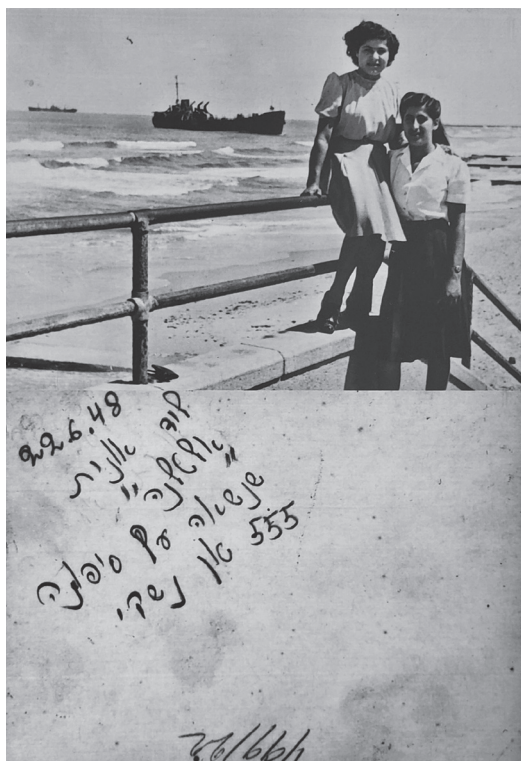 22.6.48
ליד אונית
"אלטלנה"
שנשאה על סיפונה
555 טון